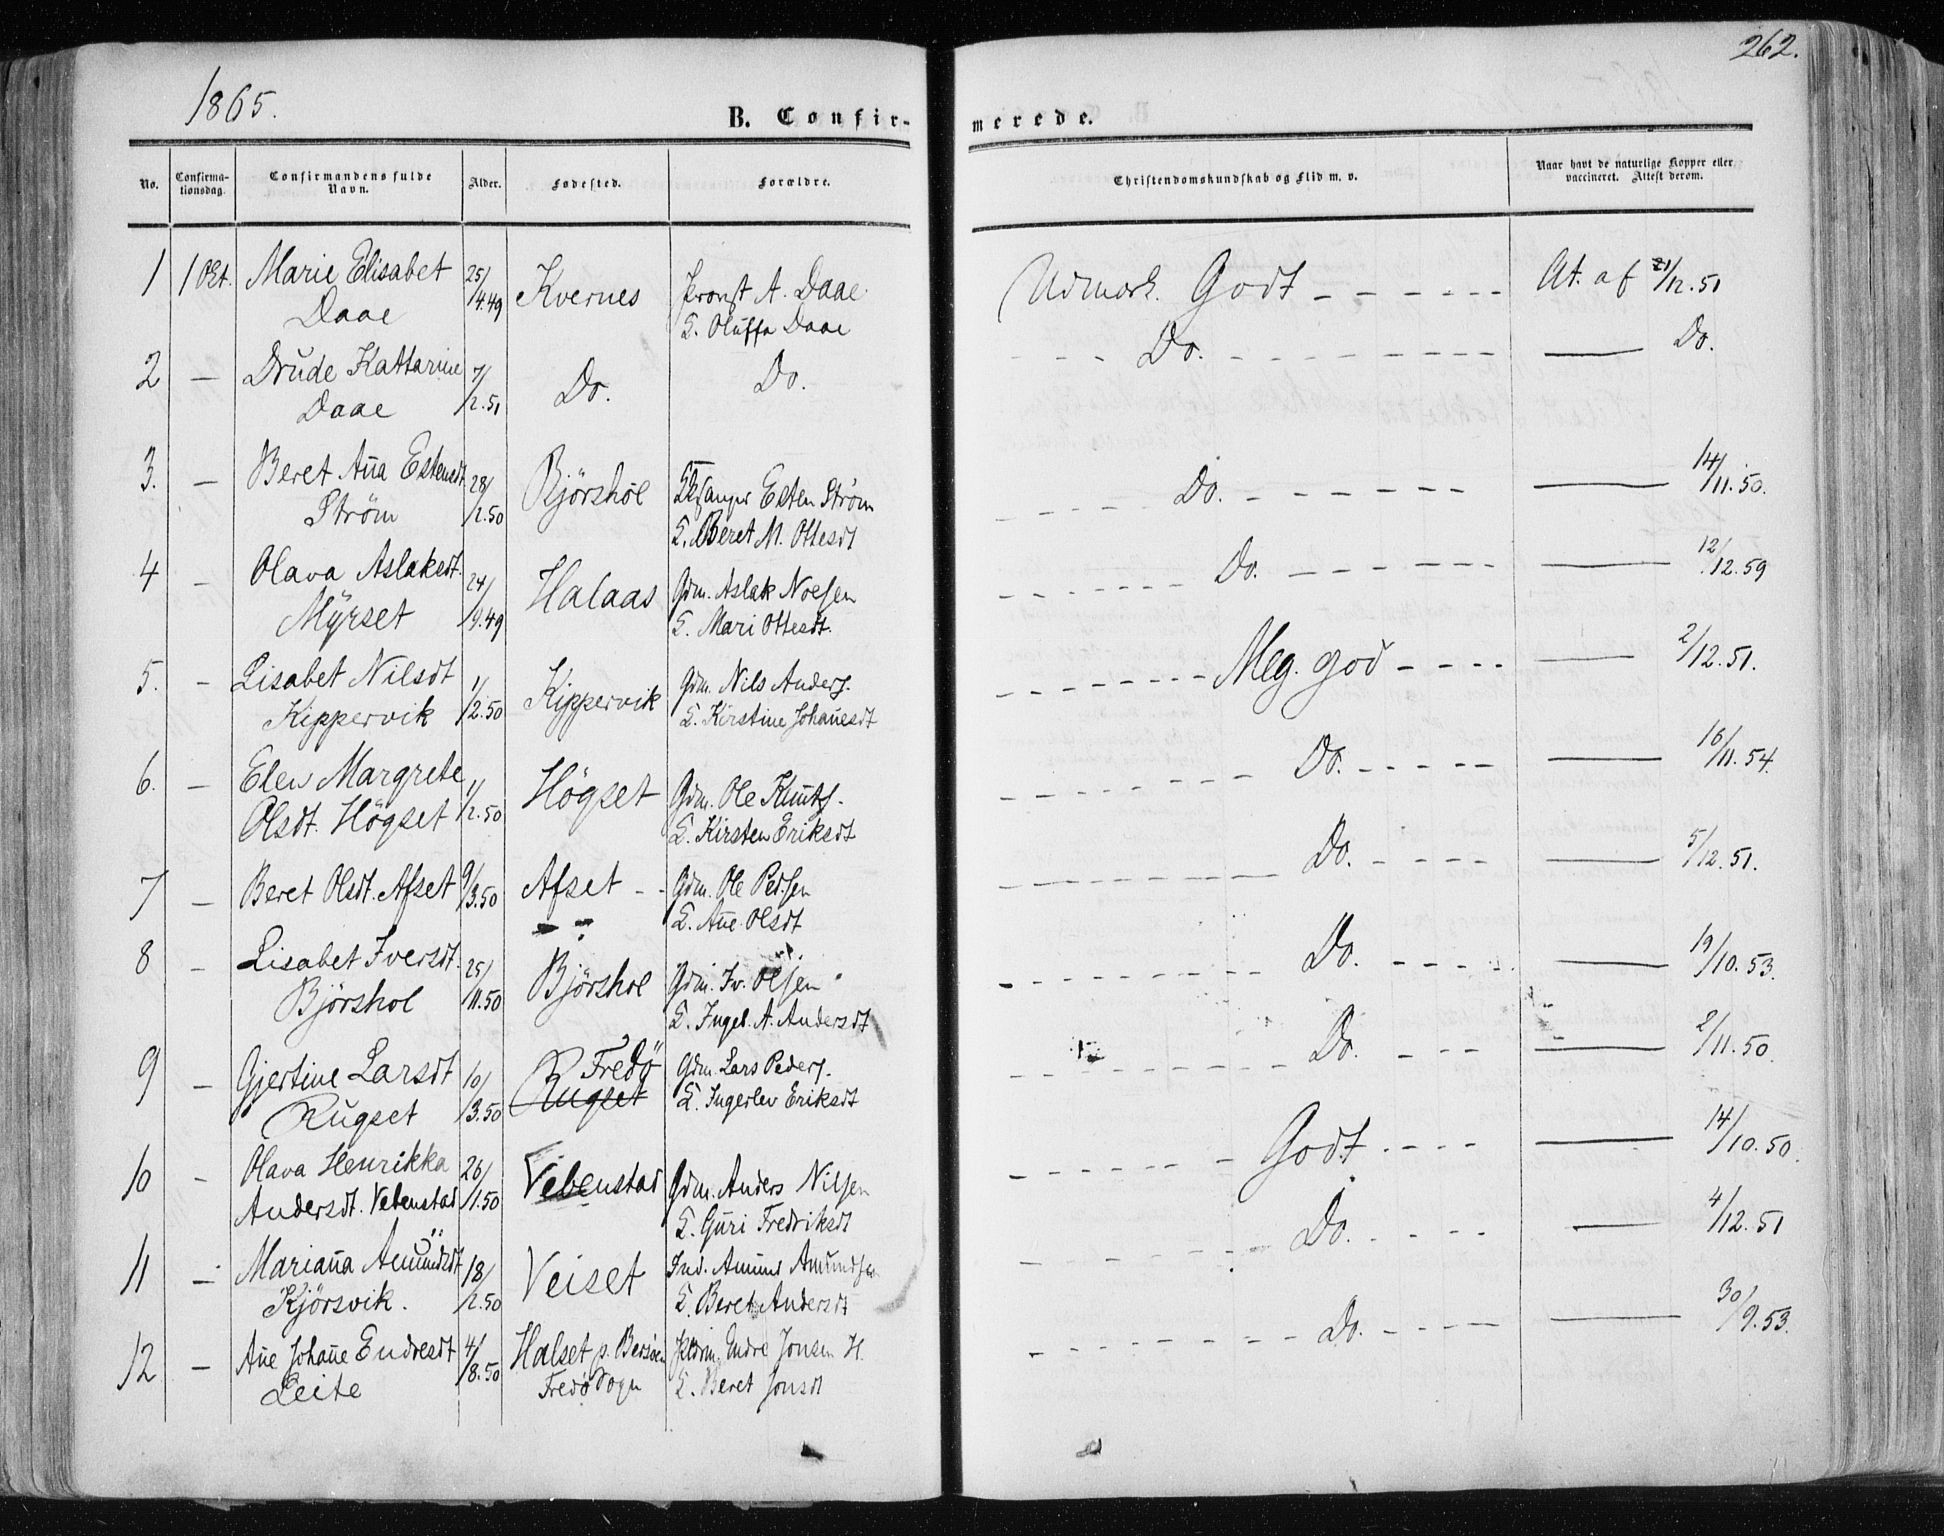 262.
1865.
B. Confirmerede.
No. Confirmationsdag. Confirmandens fulde Navn. Alder. Fødested. Forældre. Christendomskundskab og Flid m. v. Naar havt de naturlige Kopper eller vaccineret. Attest derom.
1 1 Okt. Marie Elisabet 25/4.49 Kvernes Provst A. Daae Udmærk. Godt - - - - - At. af 21/12.51
Daae E. Oluffa Daae
2 — Drude Kattarine 7/12.51 Do. Do. - - - Do. - - - — Do.
Daae
3. — Beret Aña Estensdt 28/2.50 Björshol Esten Ström - - - Do. - - - — 14/11.50.
Ström E. Beret M. Ottesdt
4 — Olava Aslaksdt. 24/9.49 Halaas Gdm. Aslak Noesen - - - Do. - - - — 12/12.59
Myrset E. Mari Ottesdt.
5. — Lisabet Nilsdt 1/2.50 Kippervik Gdm. Nils Anders. - - - Meg. god - - - — 2/12.51.
Kippervik E. Kirstine Johañesdt
6. — Elen Margrete 1/2.50 Högset Gdm. Ole Knuts. - - - Do. - - - — 16/11.54.
Olsdt. Högset E. Kirsten Eriksdt
7 — Beret Olsdt. Afset 9/3.50 Afset - - Gdm. Ole Pedsen - - - Do. - - - — 5/12.51.
E. Añe Olsdt
8 — Lisabet Iversdt. 25/11.50 Björshol Gdm. Iv. Olsen - - - Do. - - - — 19/10.53.
Björshol E. Ingeb. A. Andersdt
9 — Gjertine Larsdt 10/3.50 Fredö Gdm. Lars Peders. - - - Do. - - - — 2/11.50.
Rugset Rugset E. Ingerlev Eriksdt
10 — Olava Henrikka 26/1.50 Vebenstad Gdm. Anders Nilsen - - - Godt - - - — 14/10.50.
Andersdt. Vebenstad E. Guri Fredriksdt
11 — Mariaña Amundsdt 18/2.50 Veiset Ind. Amund Amundsen - - - Do. - - - — 4/12.51
Kjörsvik. E. Beret Andersdt
12 — Añe Johañe Endresdt 4/8.50 Halset p. Bersöen Endre Jonsen H. - - - Do. - - - — 30/9.53.
Leite Fredö Sogn E. Beret Jonsdt